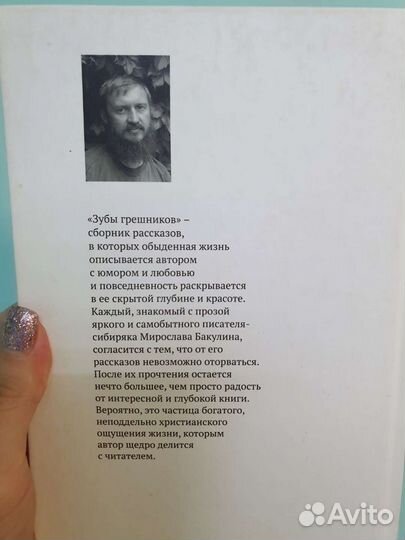 «Зубы грешников» –
сборник рассказов,
в которых обыденная жизнь
описывается автором
с юмором и любовью
и повседневность раскрывается
в ее скрытой глубине и красоте.
Каждый, знакомый с прозой
яркого и самобытного писателя-
сибиряка Мирослава Бакулина,
согласится с тем, что от его
рассказов невозможно оторваться.
После их прочтения остается
нечто большее, чем просто радость
от интересной и глубокой книги.
Вероятно, это частица богатого,
неподдельно христианского
ощущения жизни, которым
автор щедро делится
с читателем.
Avito